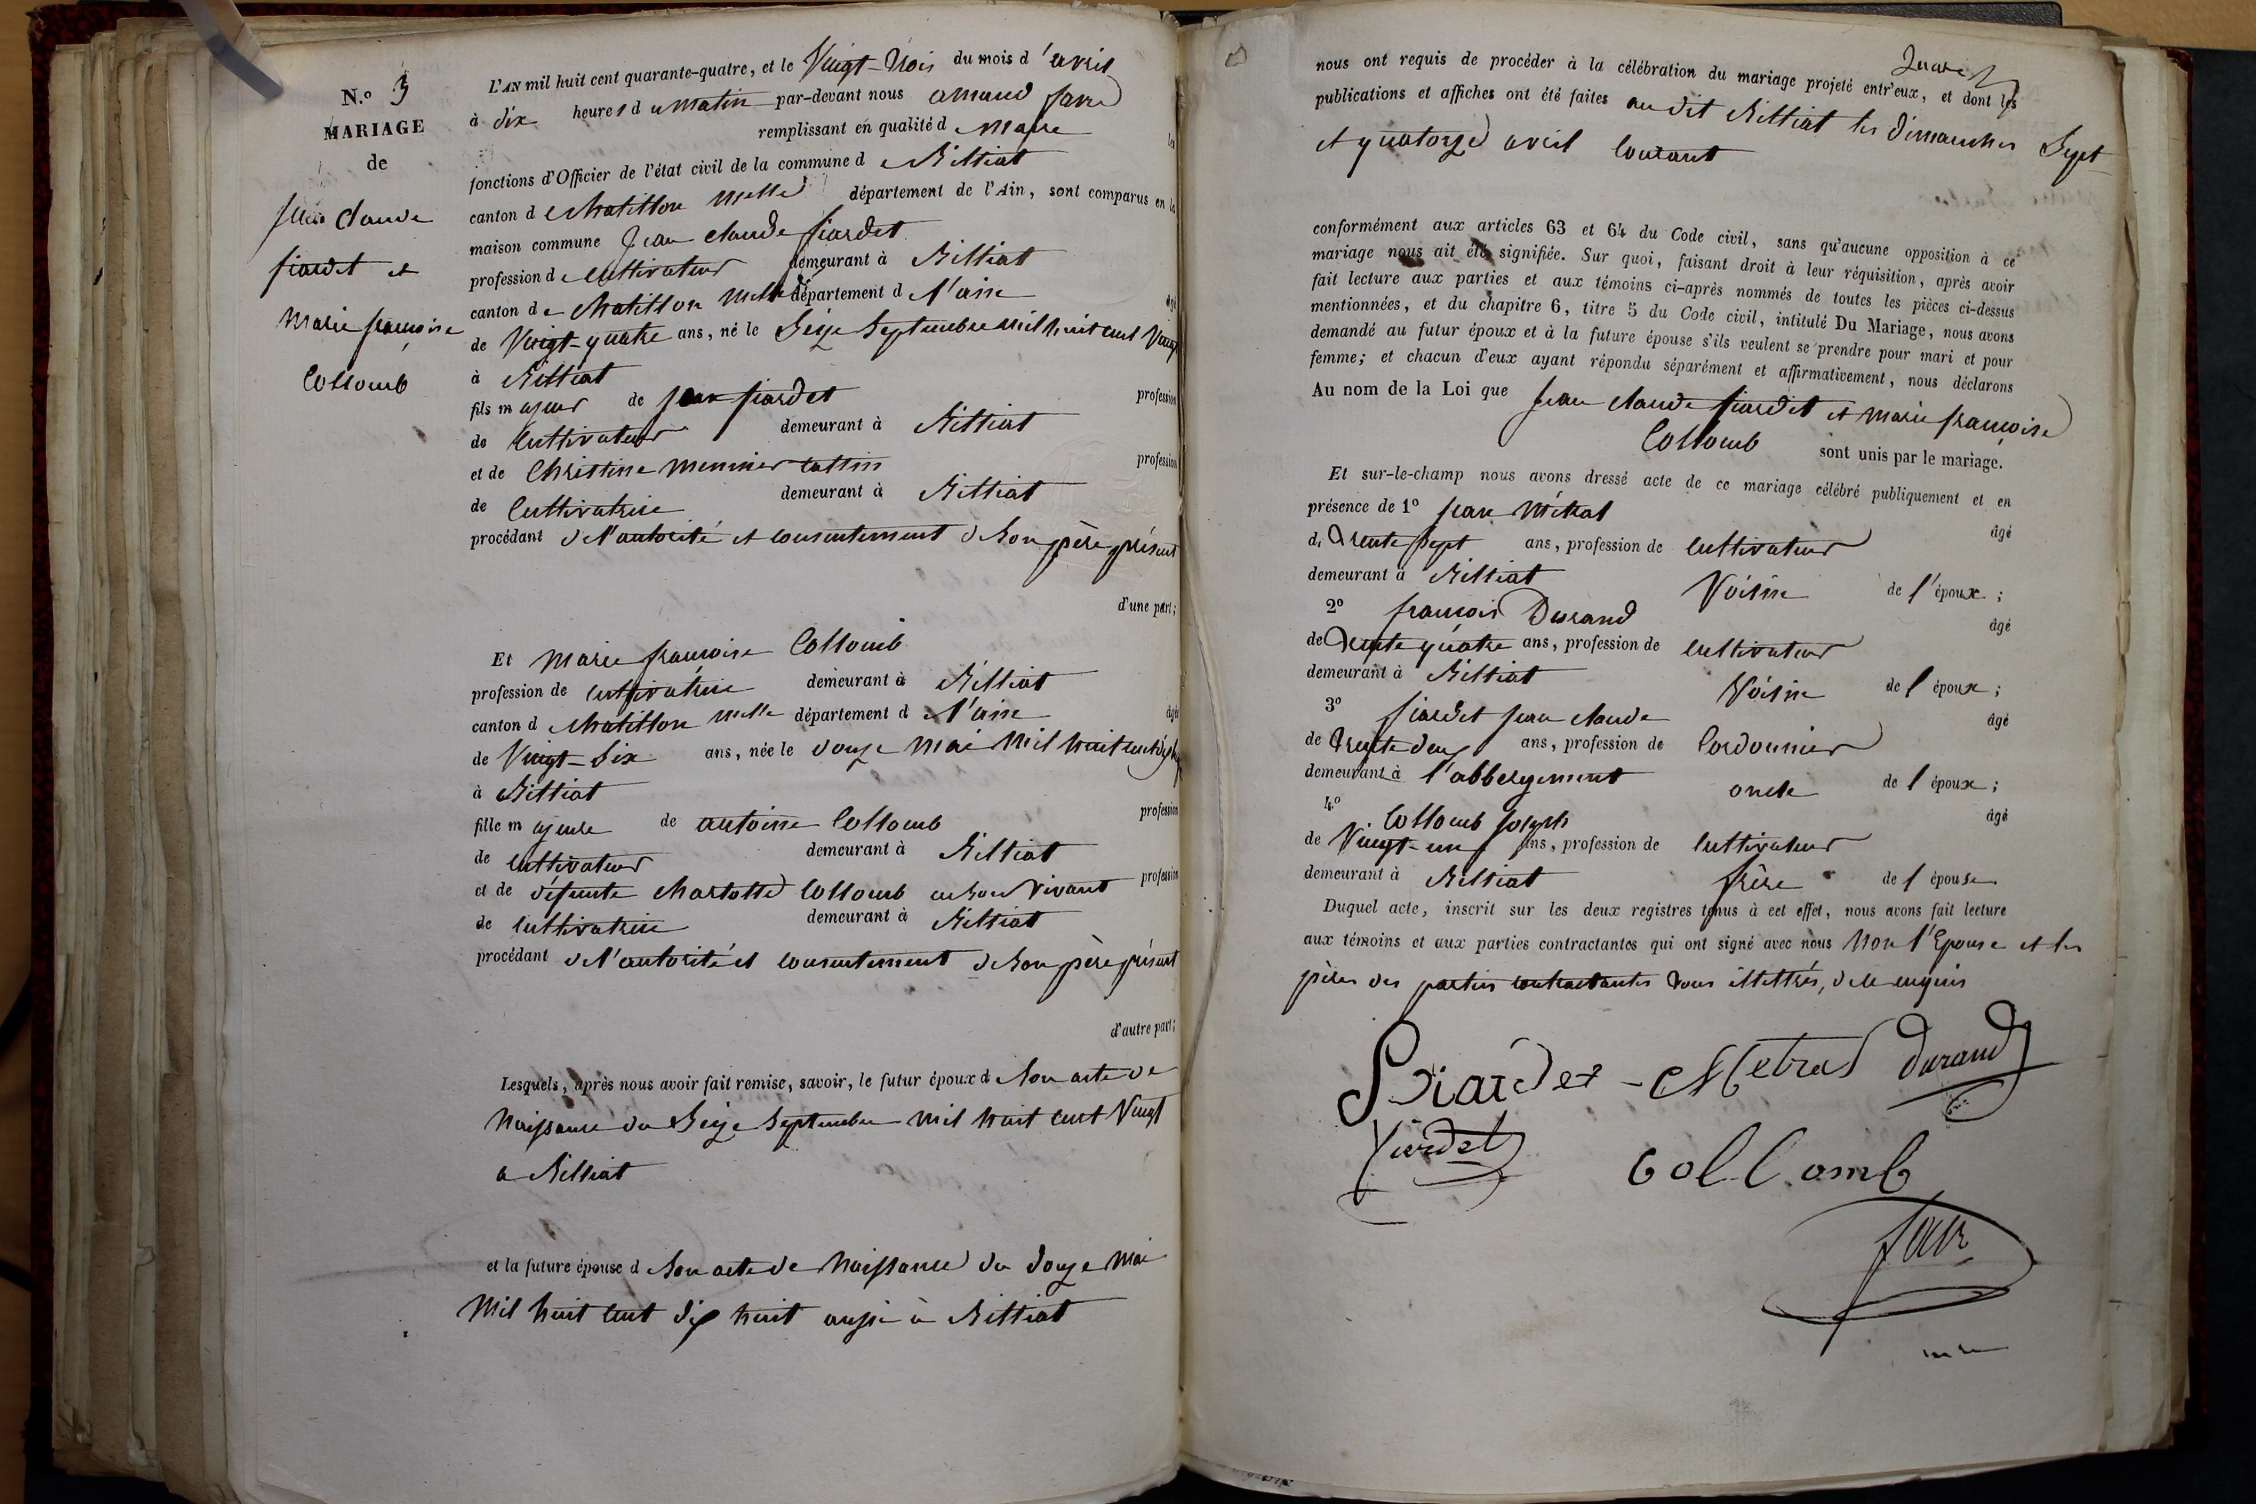 N.o 3
MARIAGE
de
Jean Claude
fiardet et
Marie françoise
Collomb
L'AN mil huit cent quarante-quatre, et le Vingt-trois du mois d'avril
à dix heures du matin par-devant nous armand favre
remplissant en qualité de Maire les
fonctions d'Officier de l'état civil de la commune de Billiat
canton de chatillon Mlle département de l'Ain, sont comparus en la
maison commune Jean claude fiardet
profession de cultivateur demeurant à Billiat
canton de chatillon Mlle département de l'ain âgé
de Vingt-quatre ans, né le Seize Septembre mil huit cent Vingt
à Billiat
fils majeur de jean fiardet profession
de cultivateur demeurant à Billiat
et de Christine Meunier cattin profession
de Cultivatrice demeurant à Billiat
procédant de l'autorité et consentement de son père présent
d'une part;
Et Marie françoise Collomb
profession de cultivatrice demeurant à Billiat
canton de chatillon Mlle département de l'ain âgée
de Vingt-Six ans, née le douze Mai Mil huit cent dix huit
à Billiat
fille majeure de antoine Collomb profession
de cultivateur demeurant à Billiat
et de défunte charlotte Collomb en son vivant profession
de cultivatrice demeurant à Billiat
procédant de l'autorité et consentement de son père présent
d'autre part;
Lesquels, après nous avoir fait remise, savoir, le futur époux de Son acte de
Naissance du Seize Septembre mil huit cent Vingt
a Billiat
et la future épouse de Son acte de Naissance du douze Mai
Mil huit cent dix huit aussi à Billiat
nous ont requis de procéder à la célébration du mariage projeté entr'eux, et dont les
publications et affiches ont été faites au dit Billiat les dimanches Sept
et quatorze avril courant
conformément aux articles 63 et 64 du Code civil, sans qu'aucune opposition à ce
mariage nous ait été signifiée. Sur quoi, faisant droit à leur réquisition, après avoir
fait lecture aux parties et aux témoins ci-après nommés de toutes les pièces ci-dessus
mentionnées, et du chapitre 6, titre 5 du Code civil, intitulé Du Mariage, nous avons
demandé au futur époux et à la future épouse s'ils veulent se prendre pour mari et pour
femme; et chacun d'eux ayant répondu séparément et affirmativement, nous déclarons
Au nom de la Loi que Jean claude fiardet et Marie françoise
Collomb sont unis par le mariage.
Et sur-le-champ nous avons dressé acte de ce mariage célébré publiquement et en
présence de 1o jean Métral âgé
de trente Sept ans, profession de cultivateur
demeurant à Billiat Voisin de l'époux;
2o françois Durand âgé
de trente quatre ans, profession de cultivateur
demeurant à Billiat Voisin de l'époux;
3o fiardet jean claude âgé
de trente deux ans, profession de Cordonnier
demeurant à l'abbergement oncle de l'époux;
4o Collomb joseph âgé
de Vingt-un ans, profession de cultivateur
demeurant à Billiat frère de l'épouse
Duquel acte, inscrit sur les deux registres tenus à cet effet, nous avons fait lecture
aux témoins et aux parties contractantes qui ont signé avec nous Non l'Epouse et les
pères des parties contractantes tous illettrés, de ce enquis
fiardet Metral durand
fiardet Collomb
favre